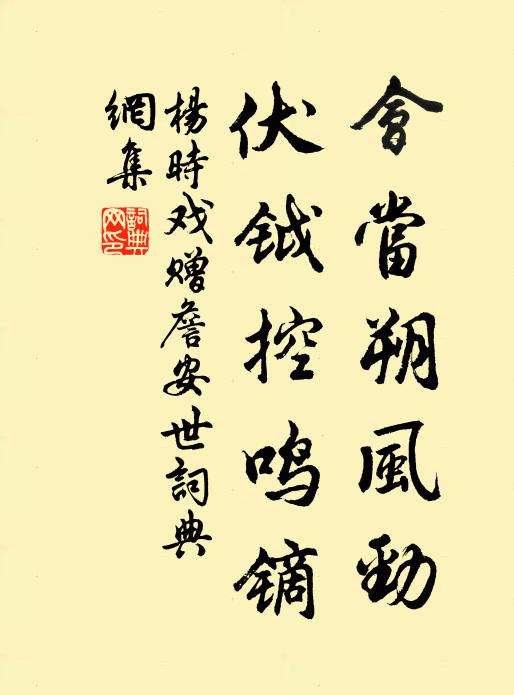 會當朔風勁
伏鉞控鳴镝
楊時戏赠詹安世詞典
網集
詞典网印